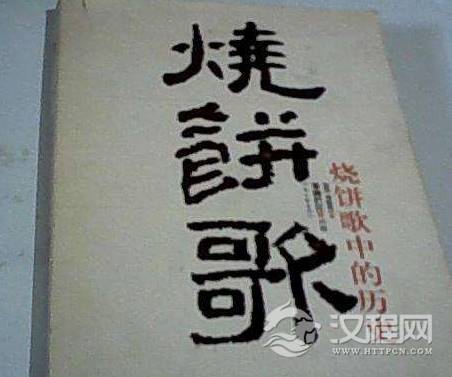 燒餅歌
烧饼歌中的历
汉程网
WWW.HTTPCN.COM